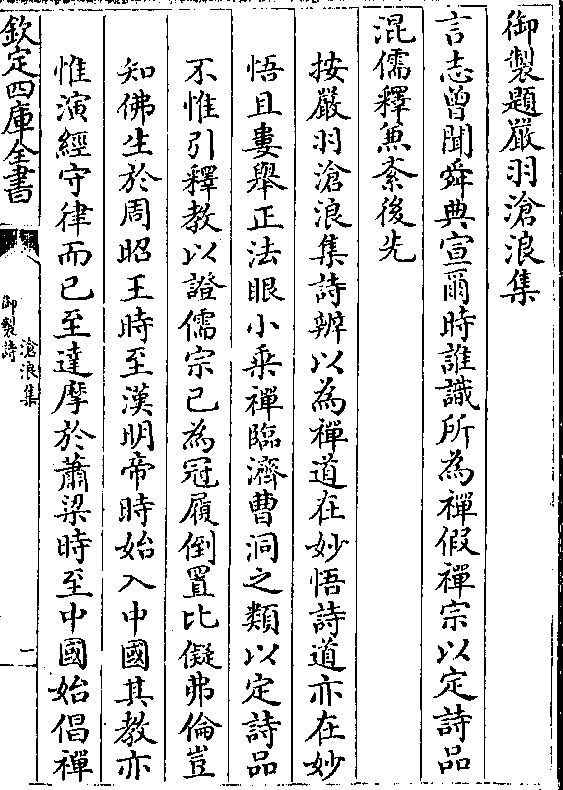 御製題嚴羽滄浪集
言志曾聞舜典宣爾時誰識所為禪假禪宗以定詩品
混儒釋無紊後先
按嚴羽滄浪集詩辨以為禪道在妙悟詩道亦在妙
悟且婁舉正法眼小乘禪臨濟曹洞之類以定詩品
不惟引釋教以證儒宗已為冠履倒置比儗弗倫豈
知佛生於周昭王時至漢明帝時始入中國其教亦
惟演經守律而已至達摩於蕭梁時至中國始倡禪
欽定四庫全書
滄浪集
御製詩
一